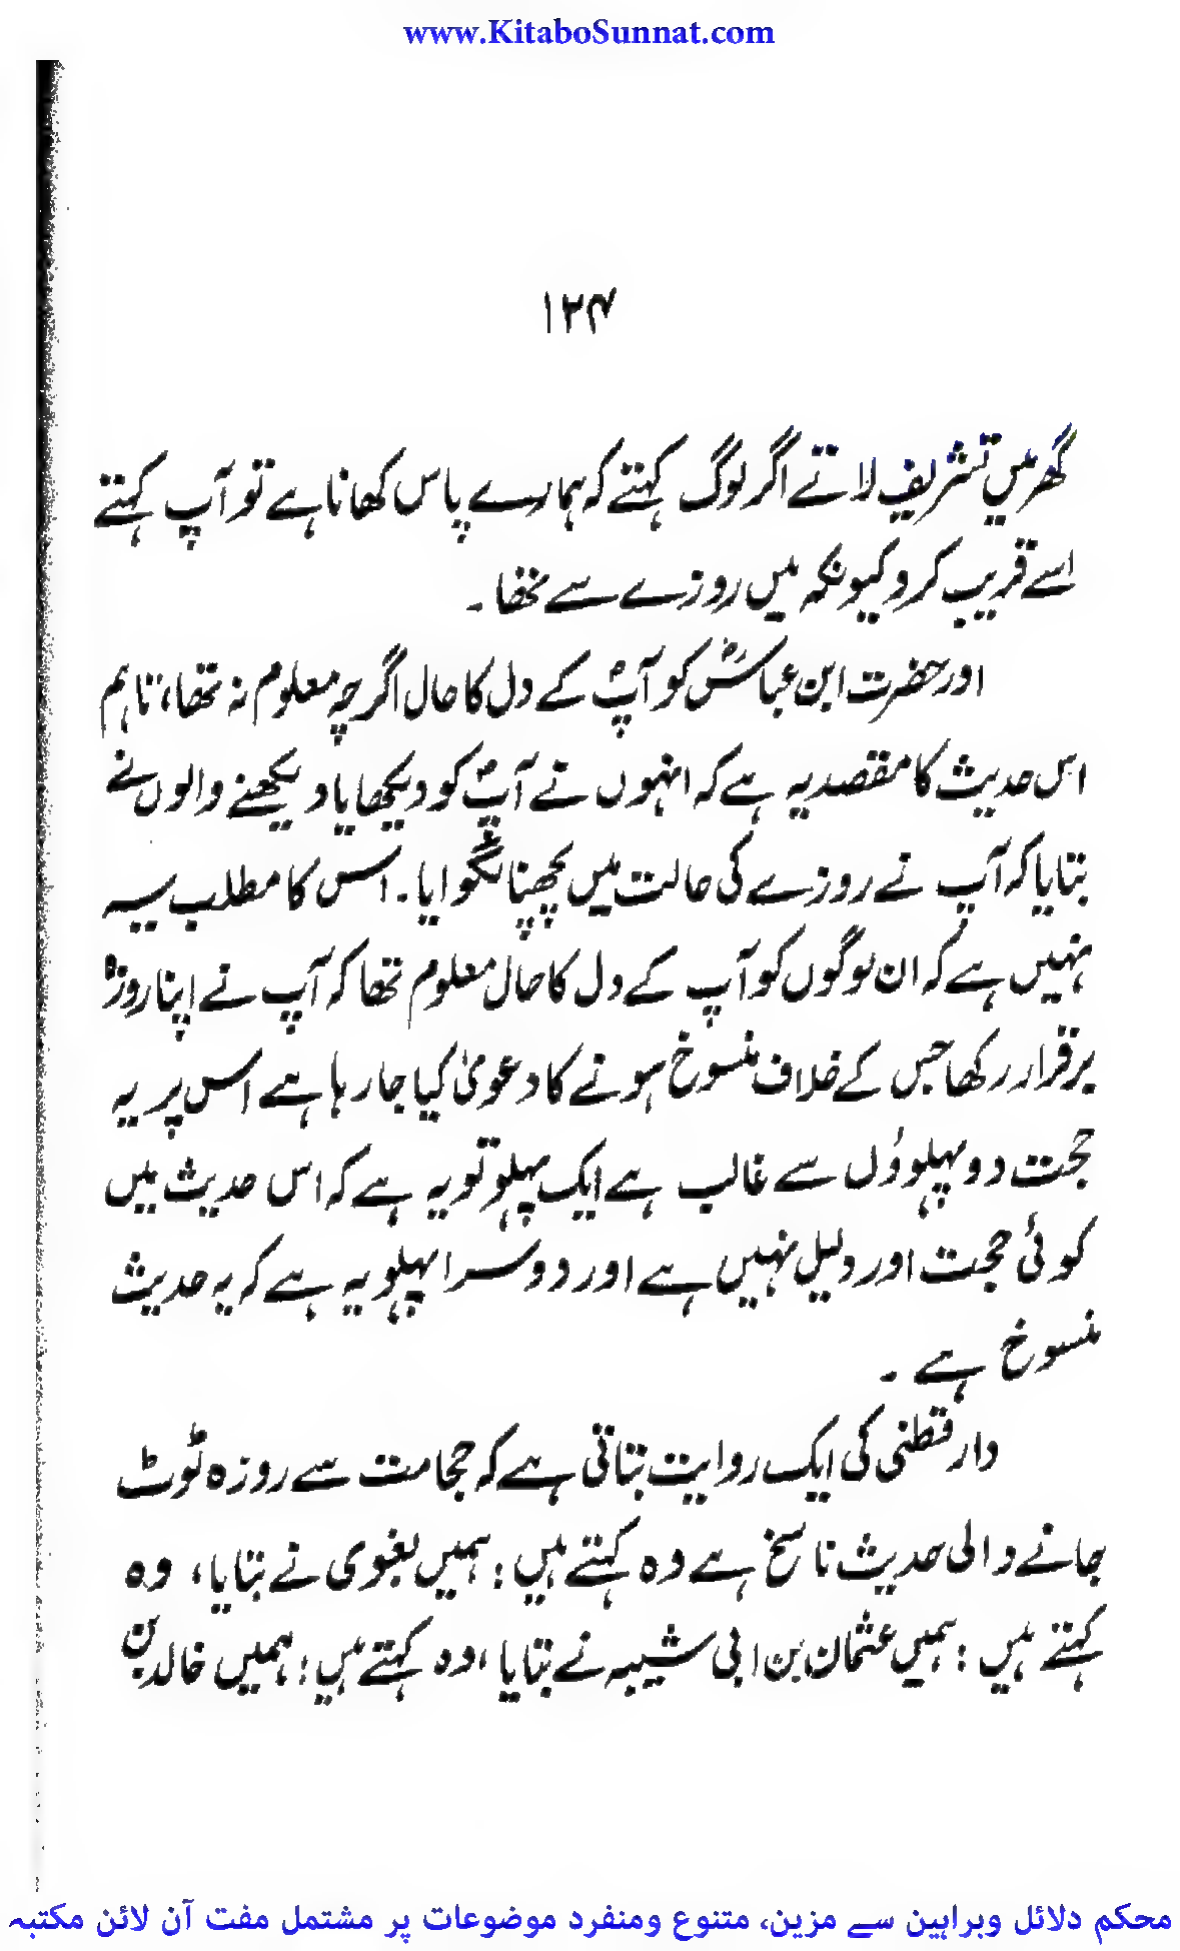 www.KitaboSunnat.com
۱۲۴
گھر میں تشریف لاتے اگر لوگ کہتے کہ ہمارے پاس کھانا ہے تو آپ کہتے
اسے قریب کرو کیونکہ میں روزے سے تھا۔
اور حضرت ابن عباسؓ کو آپؐ کے دل کا حال اگرچہ معلوم نہ تھا، تاہم
اس حدیث کا مقصد یہ ہے کہ انہوں نے آپؐ کو دیکھا یا دیکھنے والوں نے
بتایا کہ آپ نے روزے کی حالت میں پچھنا لگوایا۔ اس کا مطلب یہ
نہیں ہے کہ ان لوگوں کو آپ کے دل کا حال معلوم تھا کہ آپ نے اپنا روزہ
برقرار رکھا جس کے خلاف منسوخ ہونے کا دعویٰ کیا جا رہا ہے اس پر یہ
حجت دو پہلووُں سے غالب ہے ایک پہلو تو یہ ہے کہ اس حدیث میں
کوئی حجت اور دلیل نہیں ہے اور دوسرا پہلو یہ ہے کہ یہ حدیث
منسوخ ہے ۔
دار قطنی کی ایک روایت بتاتی ہے کہ حجامت سے روزہ ٹوٹ
جانے والی حدیث ناسخ ہے وہ کہتے ہیں : ہمیں بغوی نے بتایا، وہ
کہتے ہیں : ہمیں عثمان بن ابی شیبہ نے بتایا ، وہ کہتے ہیں : ہمیں خالد بن
محکم دلائل وبراہین سے مزین، متنوع ومنفرد موضوعات پر مشتمل مفت آن لائن مکتبہ